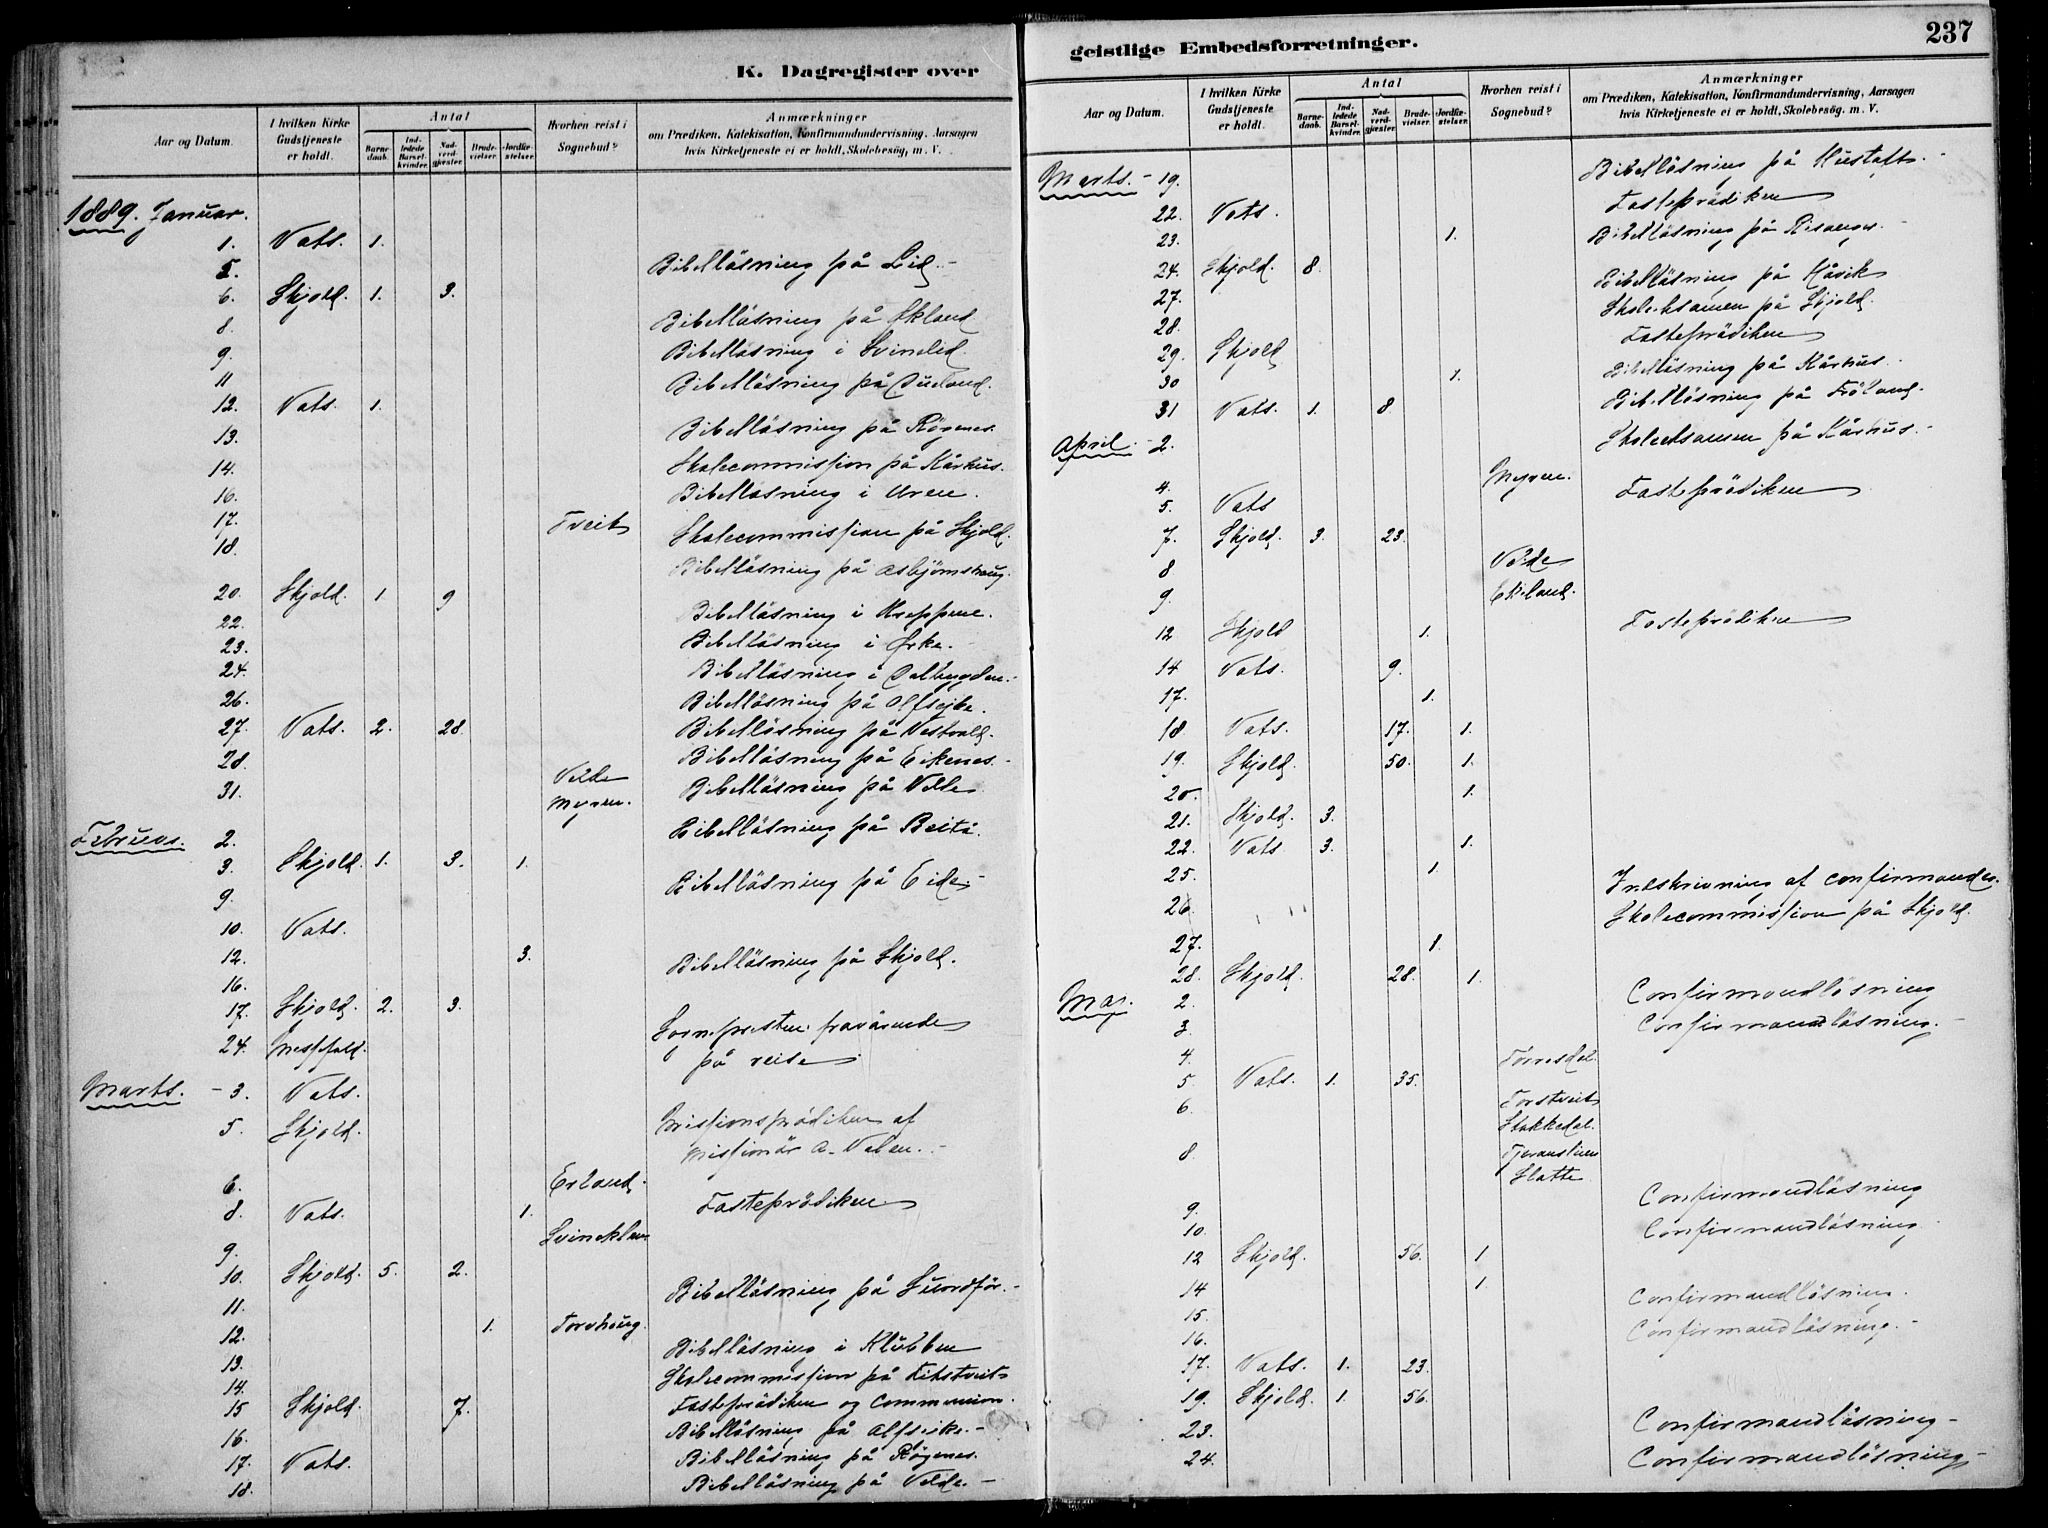 K. Dagregister over
Aar og Datum.
I hvilken Kirke Gudstjeneste er holdt.
Antal
Barnedaab.
Indledede Barselkvinder.
Nadverdgjester.
Brudevielser.
Jordfæstelser.
Hvorhen reist i Sognebud?
Anmærkninger
om Prædiken, Katekisation, Konfirmandundervisning, Aarsagen
hvis Kirketjeneste ei er holdt, Skolebesøg, m. V.
1889. Januar.
1. Vats. 1.
5. Bibellåsning på Lid.
6. Skjold. 1. 3.
8. Bibellåsning på Økland
9. Bibellåsning i Svinelid.
11 Bibellåsning på
12. Vats. 1.
13. Bibellåsning på Røgenes.
14. Skolecommission på Kårhus.
16. Bibellåsning i Uren.
17. Tveit
18. Skolecommission på Skjold.
Bibellåsning på Asbjørnshaug.
20. Skjold. 1 9
22. Bibellåsning i Kreppene.
23. Bibellåsning i Ørke.
24. Bibellåsning i Dalbygden.
26. Bibellåsning på Alfsejke.
27. Vats. 2. 28. Bibellåsning på Vestvold.
28. Velde Bibellåsning på Eikenes.
31. Myren. Bibellåsning på Velde
Februar. 2. Bibellåsning på
3. Skjold. 1. 3. 1.
9. Bibellåsning på Eide.
10. Vats.
12. 3.
16. Bibellåsning på Skjold.
17. Skjold. 2. 3.
24. Messefald. Sognepresten fraværende
på reise
Marts. - 3. Vats.
5. Skjold. Missionsprädiken af
Missionär A. Valen.
6. Erland.
8. Vats. 1. Fasteprädiken
9.
10. Skjold. 5. 2.
11. Bibellåsning på
12. 1. Torvhaug.
13. Bibellåsning i Klubben
14. Skolecommission på
15 Skjold. 7. Fasteprädiken og Communion.
16. Bibellåsning på Alfseike.
17. Vats. Bibellåsning på Røgenes.
18. Bibellåsning på Velde.
geistlige Embedsforretninger.
237
Aar og Datum.
I hvilken Kirke Gudstjeneste er holdt.
Antal
Barnedaab.
Indledede Barselkvinder.
Nadverdgjæster.
Brudevielser.
Jordfæstelser.
Hvorhen reist i Sognebud?
Anmærkninger
om Prædiken, Katekisation, Konfirmandundervisning, Aarsagen
hvis Kirketjeneste ei er holdt, Skolebesøg. m. V.
Marts. - 19. Bibellåsning på
22. Vats. Fasteprädiken
23. 1. Bibellåsning på Risanger.
24. Skjold. 8.
27. Bibellåsning på Håvik
28. Skoleeksamen på Skjold.
29. Skjold Fasteprädiken
30 1. Bibellåsning på Kårhus.
31 Vats. 1. 8. Bibellåsning på Frøland.
April. - 2. Skoleeksamen på Kårhus.
4. Myren.
5. Vats Fasteprädiken
7. Skjold. 3. 23.
8 Velde
9.
12 Skjold 1. Fasteprädiken
14 Vats. 9.
17. 1.
18 Vats. 17. 1.
19. Skjold. 50. 1.
20. 1.
21. Skjold. 3.
22. Vats 3. 1.
25. 1. Indskrivning af confirmander.
26. Skolecommission på Skjold.
27. 1.
28. Skjold. 28. 1.
Mai. 2. Confirmandläsning
3. Confirmandläsning.
4. Tornesdal.
5. Vats. 1. 35.
6. Torstveit
Stakkedal.
8.
Slatte
9. Confirmandläsning
10. Confirmandläsning
12 Skjold. 56. 1
14 1
15. Confirmandläsning.
16. Confirmandläsning.
17. Vats. 1. 23.
19. Skjold. 1. 56.
23. Confirmandläsning
24. Confirmandläsning